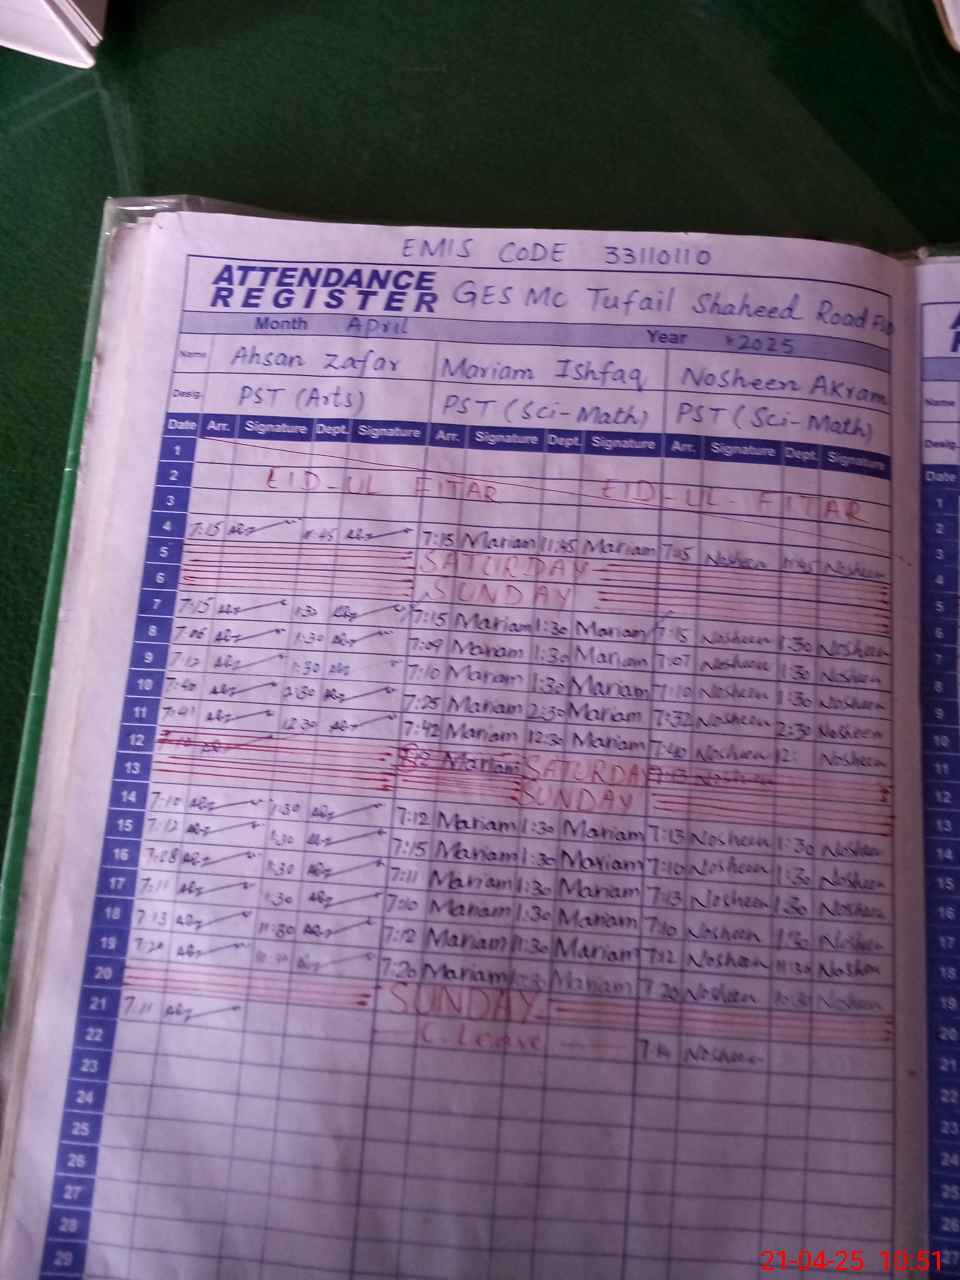 EMIS CODE 33110110
ATTENDANCE REGISTER GES MC Tufail Shaheed Road Fsd
Month April Year 2025
Name Ahsan Zafar Mariam Ishfaq Nosheen Akram
Desig. PST (Arts) PST (Sci-Math) PST (Sci-Math)
Date Arr. Signature Dept. Signature Arr. Signature Dept. Signature Arr. Signature Dept. Signature
1
2 EID-UL FITAR EID-UL-FITAR
3
4 7:15 11:45 7:15 Mariam 11:45 Mariam 7:15 Nosheen 11:45 Nosheen
5 SATURDAY
6 SUNDAY
7 7:15 1:30 7:15 Mariam 1:30 Mariam 7:15 Nosheen 1:30 Nosheen
8 7:06 1:30 7:09 Mariam 1:30 Mariam 7:07 Nosheen 1:30 Nosheen
9 7:12 1:30 7:10 Mariam 1:30 Mariam 7:10 Nosheen 1:30 Nosheen
10 7:40 2:30 7:25 Mariam 2:30 Mariam 7:32 Nosheen 2:30 Nosheen
11 7:41 12:30 7:42 Mariam 12:30 Mariam 7:40 Nosheen 12: Nosheen
12 Mariam SATURDAY 7:13 Nosheen
13 SUNDAY
14 7:10 1:30 7:12 Mariam 1:30 Mariam 7:13 Nosheen 1:30 Nosheen
15 7:12 1:30 7:15 Mariam 1:30 Mariam 7:10 Nosheen 1:30 Nosheen
16 7:08 1:30 7:11 Mariam 1:30 Mariam 7:13 Nosheen 1:30 Nosheen
17 7:11 1:30 7:10 Mariam 1:30 Mariam 7:10 Nosheen 1:30 Nosheen
18 7:13 11:30 7:12 Mariam 11:30 Mariam 7:12 Nosheen 11:30 Nosheen
19 7:20 7:20 Mariam Mariam 7:20 Nosheen 10:30 Nosheen
20 SUNDAY
21 7:11 C. Leave 7:14 Nosheen
22
23
24
25
26
27
28
29
Name
Desig.
Date
1
2
3
4
5
6
7
8
9
10
11
12
13
14
15
16
17
18
19
20
21
22
23
24
25
26
27
21-04-25 10:51